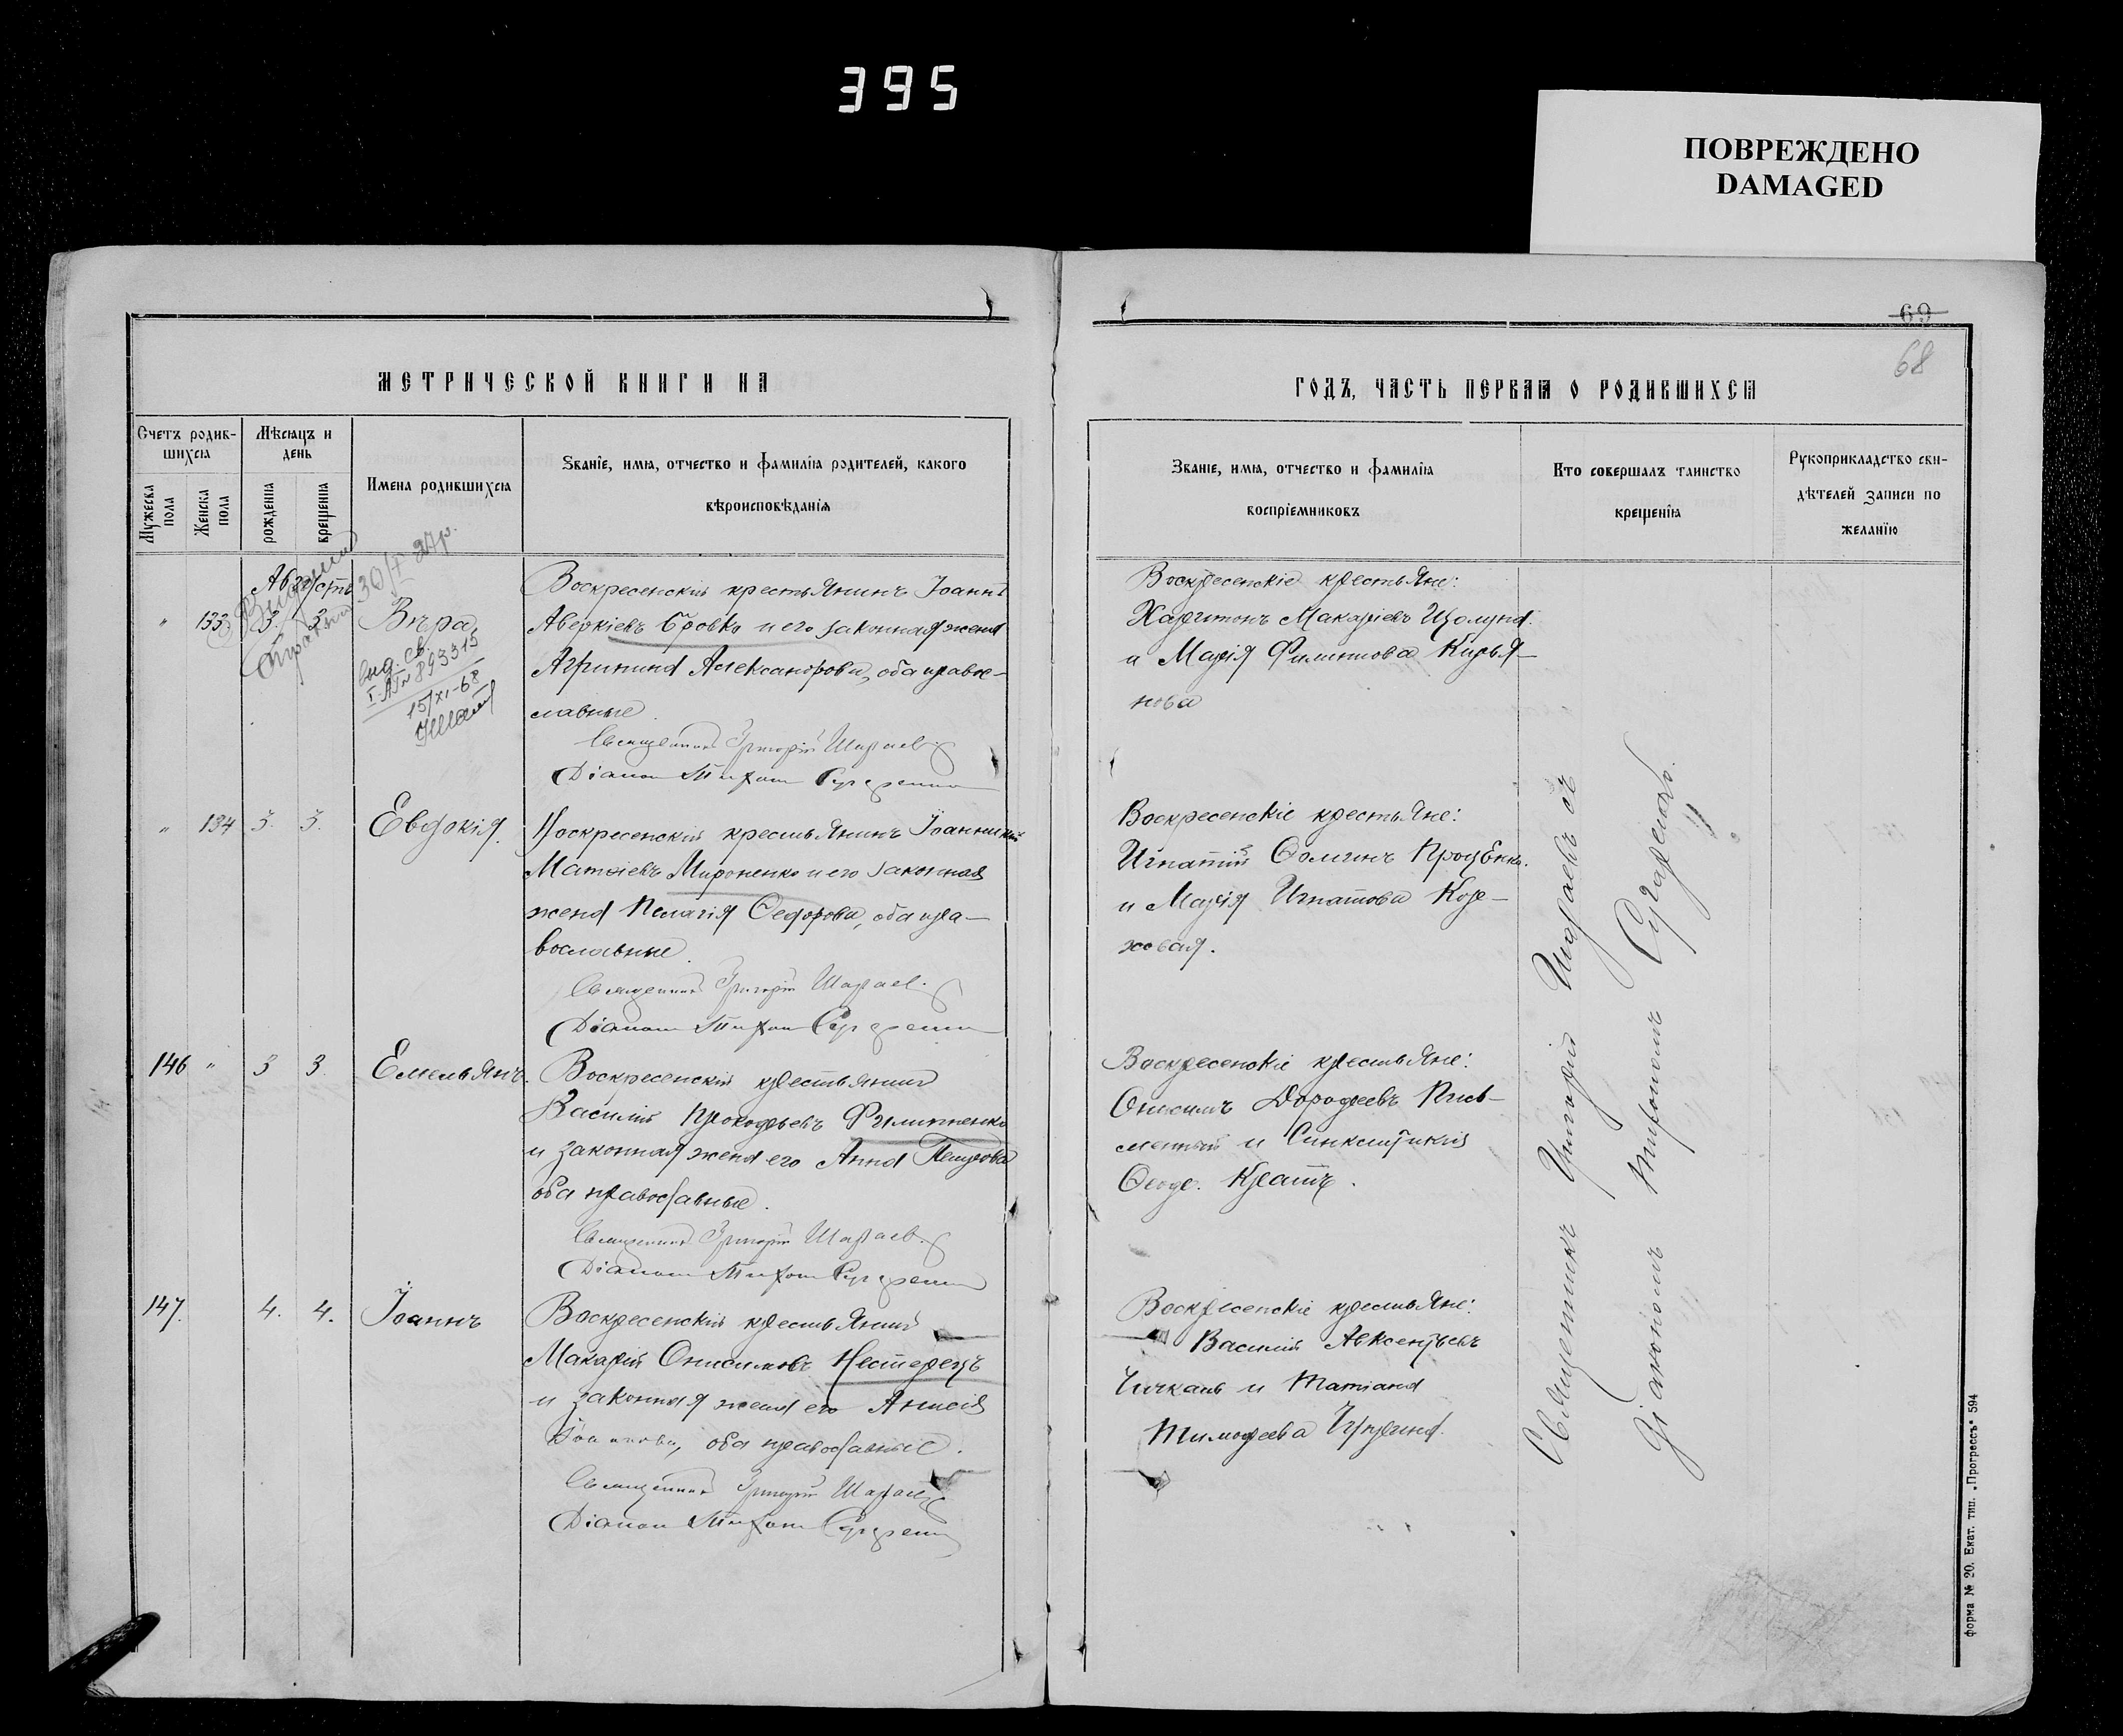 395
ПОВРЕЖДЕНО
DAMAGED
69
68
МЕТРИЧЕСКОЙ КНИГИ НА
ГОДЪ, ЧАСТЬ ПЕРВАЯ О РОДИВШИХСЯ
Счетъ родив-
шихся
Мѣсяцъ и
день
Мужеска
пола
Женска
пола
рожденія
крещенія
Имена родившихся
Званіе, имя, отчество и фамилія родителей, какого
вѣроисповѣданія
Званіе, имя, отчество и фамилія
воспріемниковъ
Кто совершалъ таинство
крещенія
Рукоприкладство сви-
дѣтелей записи по
желанію
Августъ
" 133 3. 3. Вѣра
15/XI-68
Воскресенскій крестьянинъ Іоаннъ
Аверкіевъ Бровко и его законная жена
Агрипина Александрова, оба правос-
лавные.
Священникъ Григорій Шараевъ
Діаконъ Тихонъ
Воскресенскіе крестьяне:
Харитонъ Макаріевъ
и Марія Филиппова Кирья-
нова
" 134 3. 3. Евдокія.
Воскресенскій крестьянинъ Іоанникій
Матѳіевъ Мироненко и его законная
жена Пелагія Ѳедорова, оба пра-
вославные.
Священникъ Григорій Шараевъ.
Діаконъ Тихонъ
Воскресенскіе крестьяне:
Игнатій Проценко.
и Марія Игнатова Кор-
жовая.
146 " 3 3. Емельянъ.
Воскресенскій крестьянинъ
Василій Прокофьевъ Филипенко
и законная жена его Анна Петрова
оба православные.
Священникъ Григорій Шараевъ.
Діаконъ Тихонъ
Воскресенскіе крестьяне:
Онисимъ Дорофеевъ Пись-
менный и Синклитикія
147. 4. 4. Іоаннъ
Воскресенскій крестьянинъ
Макарій Онисимовъ Нестерецъ
и законная жена его Анисія
Іоаннова, оба православные.
Священникъ Григорій Шараевъ
Діаконъ Тихонъ
Воскресенскіе крестьяне:
Василій Авксентьевъ
Чичкань и Татіана
Тимофеева
Священникъ Григорій Шараевъ съ
діакономъ Тихономъ
форма № 20. Екат. тип. „Прогрессъ" 594